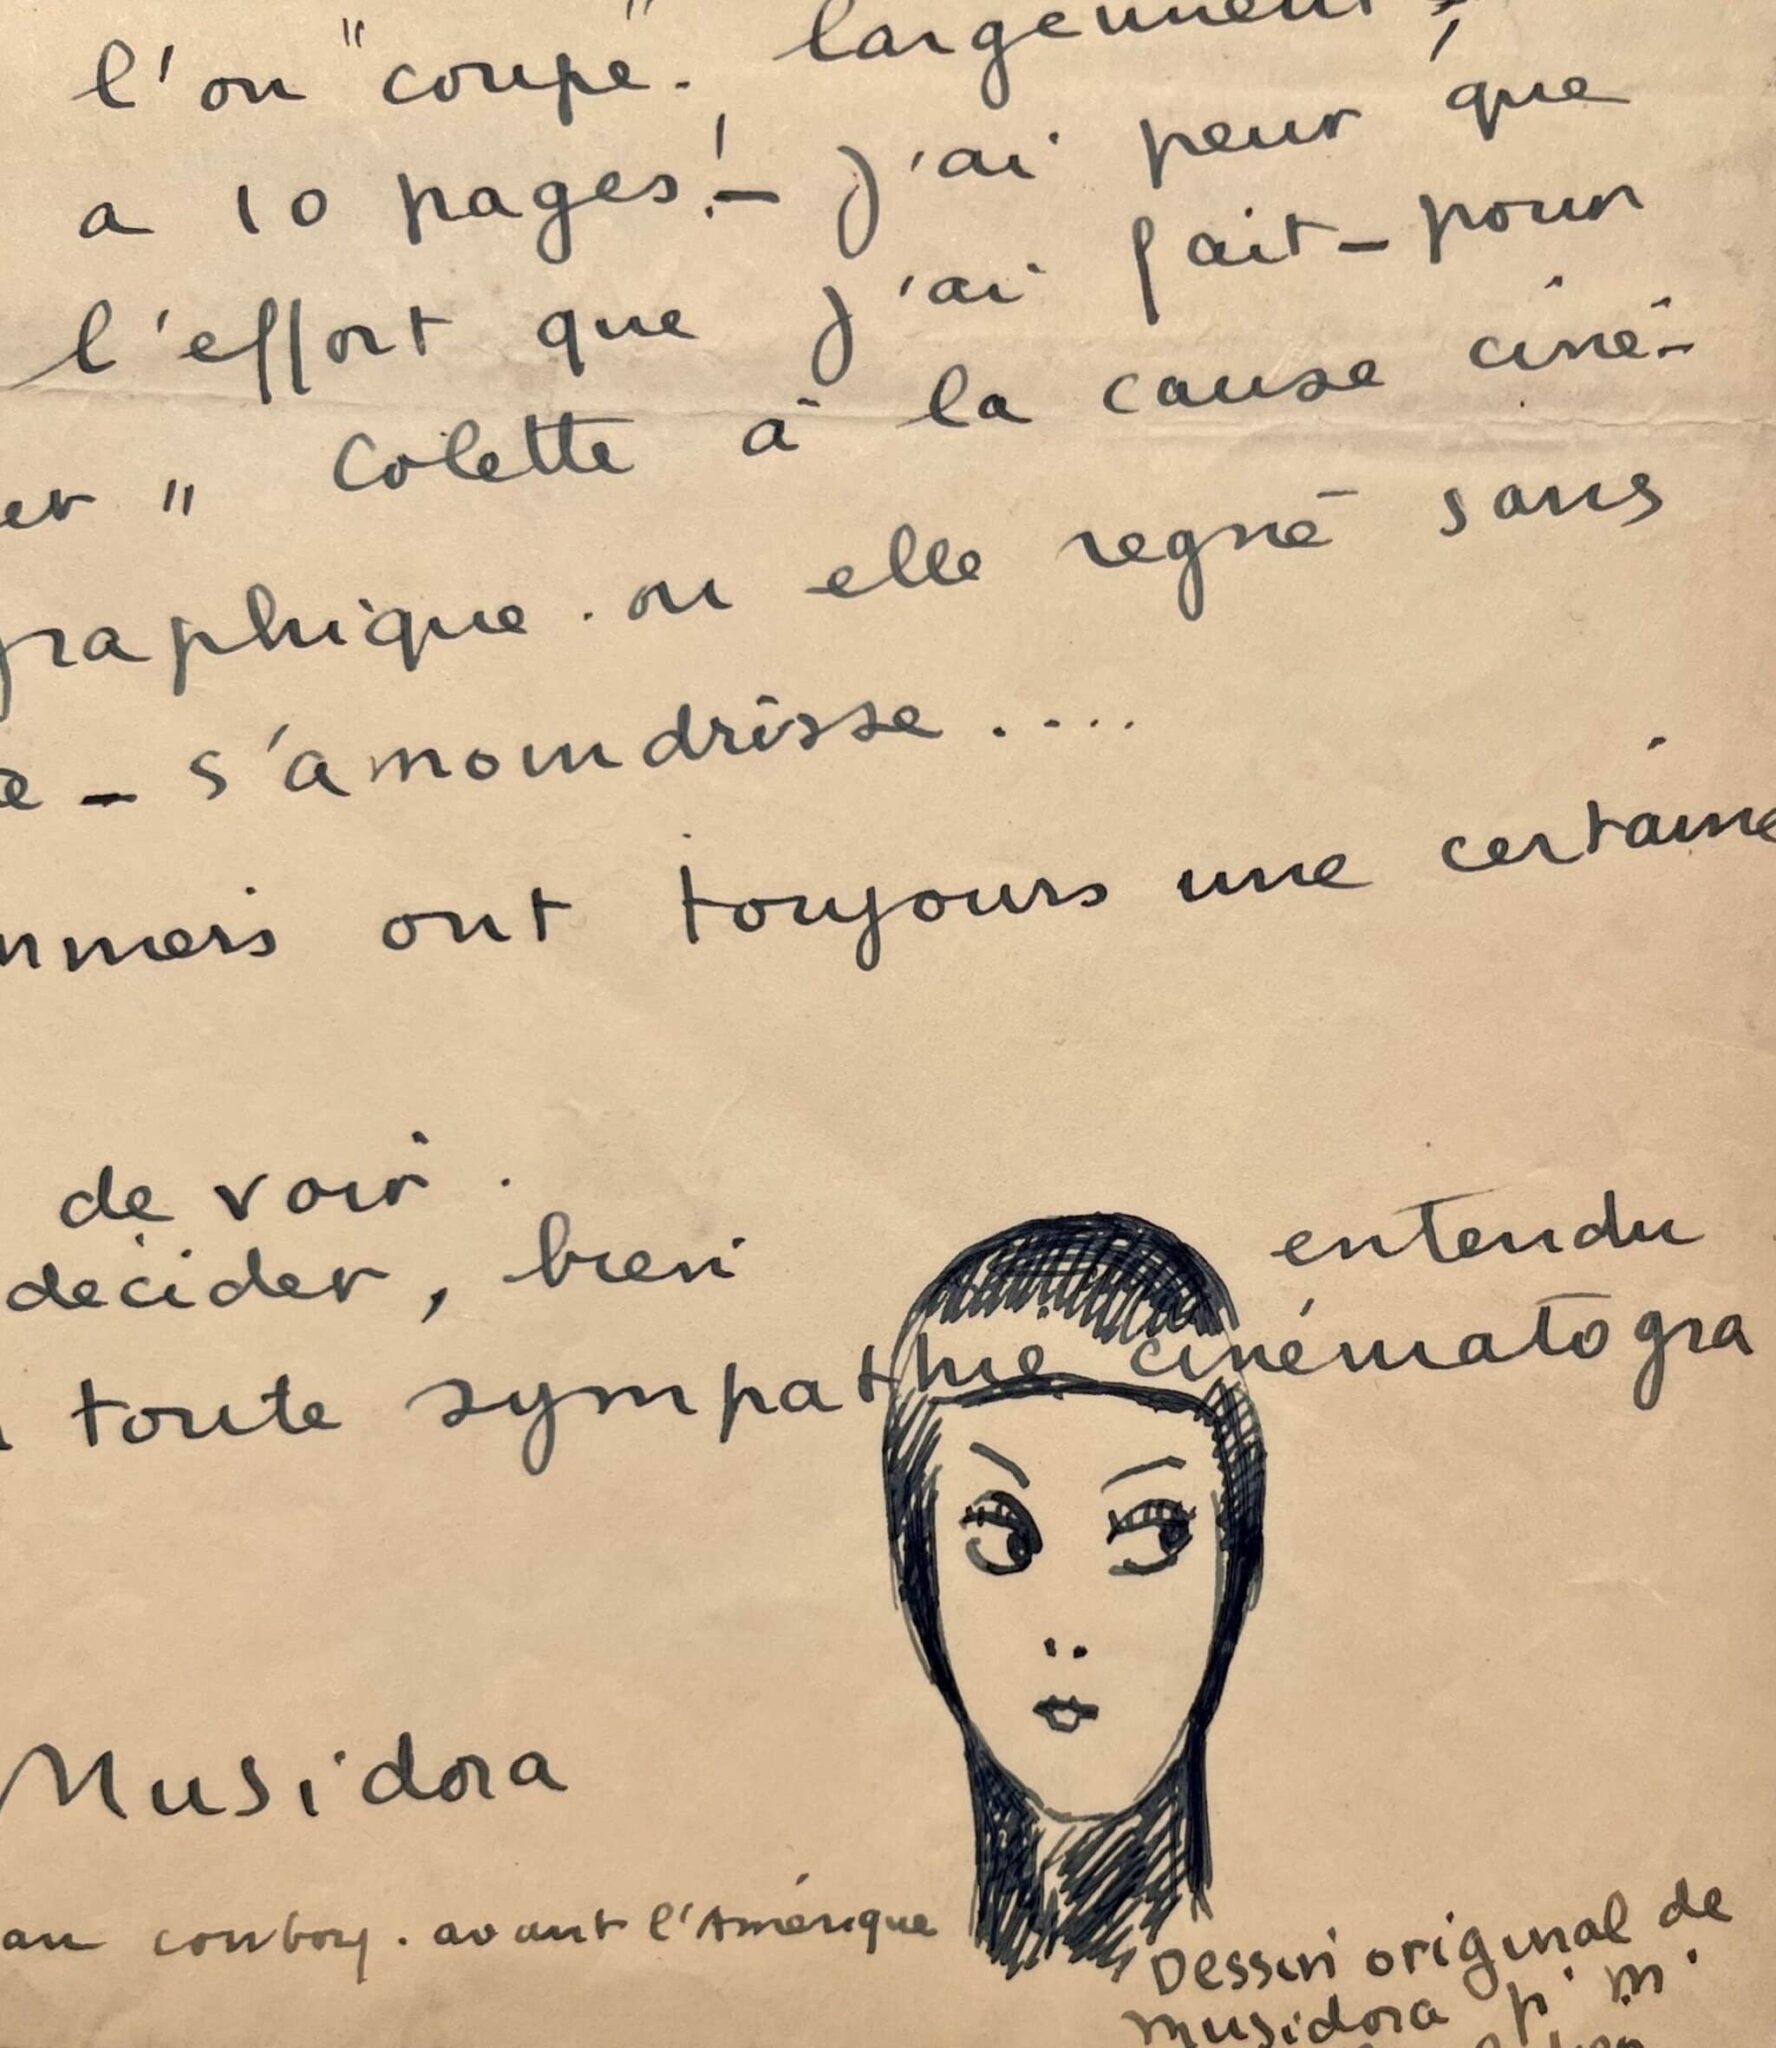 l'on "coupe" largement
a 10 pages! - J'ai peur que
l'effort que j'ai fait - pour
er " Colette à la cause ciné-
graphique. ou elle regné sans
e - s'amoindrisse ....
ont toujours une certaine
de voir.
decider, bien entendu
toute sympathie cinématogra
Musidora
au cowboy. avant l'Amérique
Dessin original de
Musidora p. M.